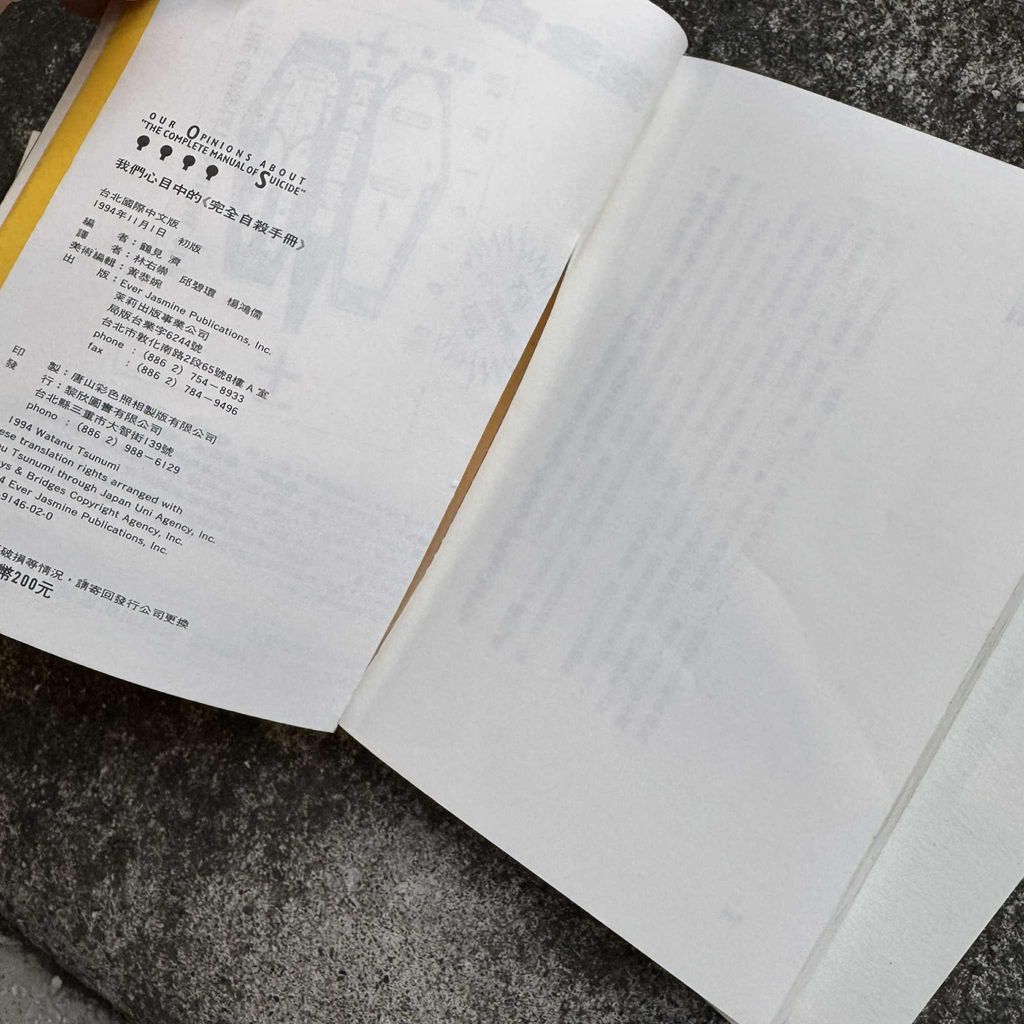 OUR OPINIONS ABOUT
"THE COMPLETE MANUAL OF SUICIDE"
我們心目中的《完全自殺手冊》
台北國際中文版
1994年11月1日 初版
編 者：鶴見 濟
譯 者：林右崇 邱碧環 楊鴻儒
美術編輯：黃恭婉
出 版：Ever Jasmine Publications, Inc.
茉莉出版事業公司
局版台業字6244號
台北市敦化南路2段65號8樓A室
phone：(886 2) 754－8933
fax ：(886 2) 784－9496
印 製：唐山彩色照相製版有限公司
發 行：黎欣圖書有限公司
台北縣三重市大智街139號
phono：(886 2) 988－6129
1994 Watanu Tsunumi
ese translation rights arranged with
u Tsunumi through Japan Uni Agency, Inc.
ys & Bridges Copyright Agency, Inc.
4 Ever Jasmine Publications, Inc.
-9146-02-0
破損等情況，請寄回發行公司更換
幣200元